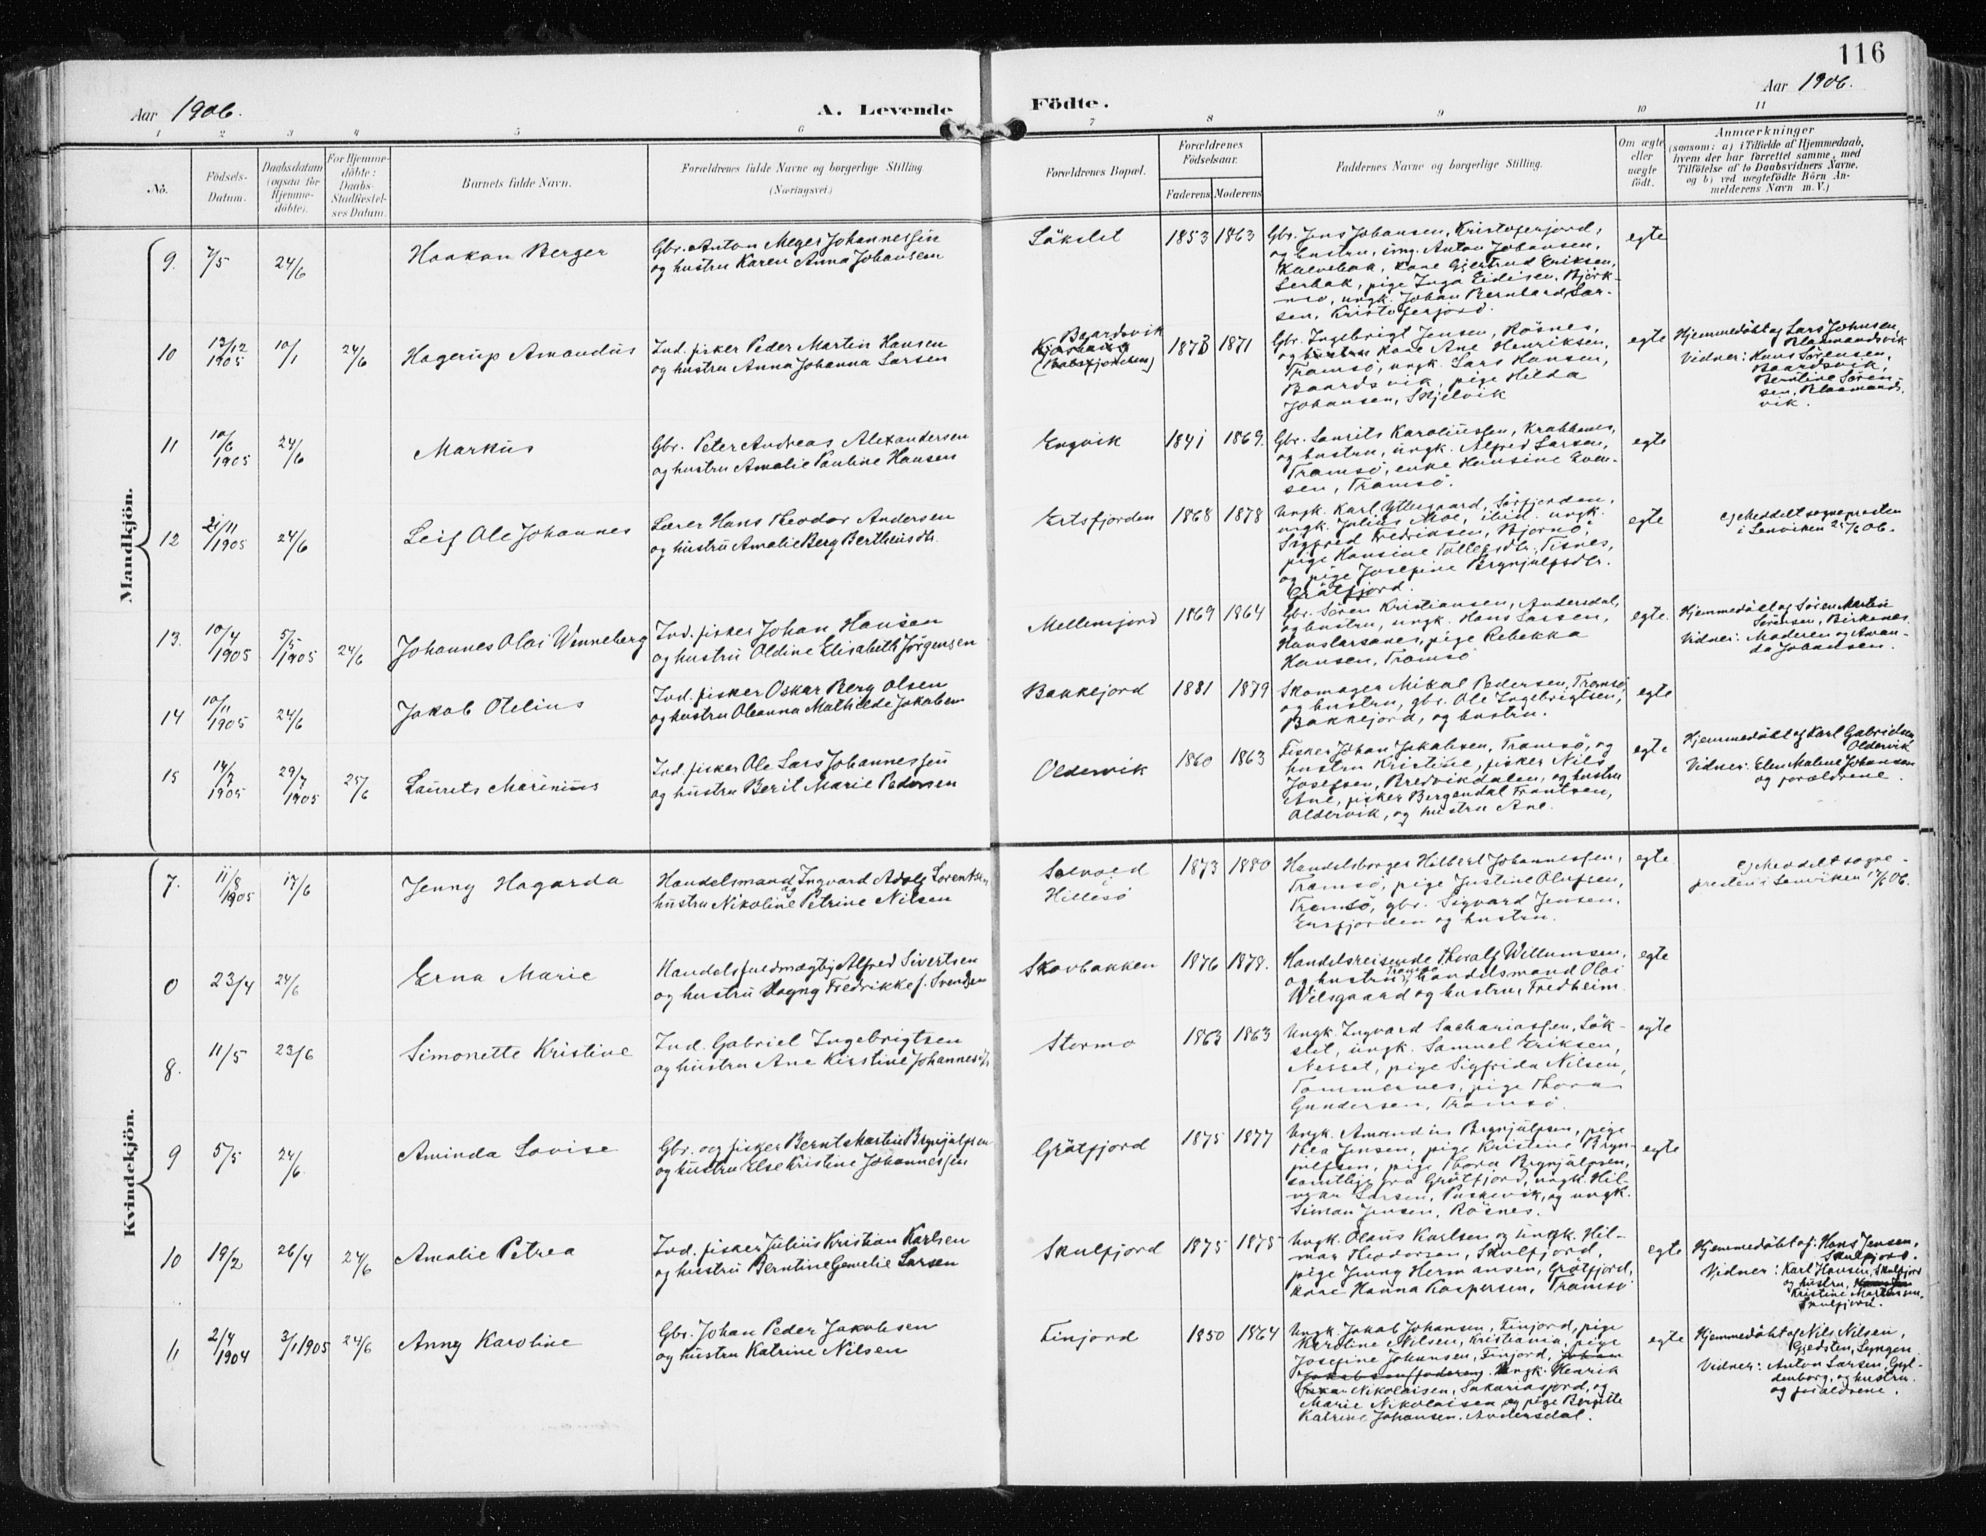 116
Aar 1906. A. Levende Födte. Aar 1906.
1 2 3 4 5 6 7 8 9 10 11
No.
Födsels-
Datum.
Daabsdatum
(ogsaa for
Hjemme-
döbte).
For Hjemme-
döbte:
Daabs-
Stadfæstel-
ses Datum.
Barnets fulde Navn.
Forældrenes fulde Navne og borgerlige Stilling
(Næringsvei.)
Forældrenes Bopæl.
Forældrenes
Födselsaar.
Faderens Moderens
Faddernes Navne og borgerlige Stilling.
Om ægte
eller
uægte
födt.
Anmærkninger
(saasom: a) i Tilfælde af Hjemmedaab,
hvem der har forrettet samme, med
Tilföielse af to Daabsvidners Navne,
og b) ved uægtefödte Börn An-
melderens Navn m. V.)
Mandkjön.
9. 7/5 24/6 Haakon Berger
Gbr. Anton Meyer Johannessen
og hustru Karen Anna Johansen
Lökslet 1853 1863
Gbr. Jens Johansen, Kristoferjord,
og hustru, ung. Anton Johansen,
Kalvebaa, kone Gjertrud Eriksen,
Lerbak, pige Inga Eidisen, Björk-
nes, ungk. Johan Bernhard Lar-
sen, Kristoferjord.
egte
10 13/12 1905 10/1 24/6 Hagerup Amandus
Ind. fisker Peder Martin Hansen
og hustru Anna Johanna Larsen
Baardsvik
1873 1871
Gbr. Ingebrigt Jensen, Rösnes,
og hustru kone Ane Henriksen,
Tromsö, ungk. Lars Hansen,
Baardsvik, pige Hilda
Johansen, Skjelvik
egte
Hjemmedöbt af Lars Johnsen,
Blaamandsvik
Vidner: Hans Sörensen,
Baardsvik,
Berntine Sören-
sen, Blaamands-
vik.
11 10/6 1905 24/6 Markus
Gbr. Peter Andreas Alexandersen
og hustru Amalie Pauline Hansen
Engvik 1841 1869.
Gbr. Laurits Karoliussen, Krabbenes,
og hustru, ungk. Alfred Larsen,
Tromsö, enke Hansine Even-
sen, Tromsö.
egte
12 21/11 1905 24/6 Leif Ole Johannes
Lærer Hans Theodor Andersen
og hustru Amalie Berg Berthusdtr.
Ertsfjorden 1868 1878
ungk. Karl Yttergaard, Sörfjorden,
ungk. Julius Moe, ibid. ungk.
Sigfred Fredriksen, Bjornö,
pige Hansine Tollefsdtr. Tisnes,
og pige Josefine Brynjulfsdtr.
Grötfjord.
egte
Meddelt sogneprsten
i Lenviken 25/6 06.
13. 10/4 1905 5/5 1905 24/6 Johannes Olai Wenneberg
Ind. fisker Johan Hansen
og hustru Oldine Elisabeth Jörgensen
Mellemjord 1869 1864
Gbr. Sören Kristiansen, Andersdal,
og hustru, ungk. Hans Larsen,
Hanslarsanes, pige Rebekka
Hansen, Tromsö
egte.
Hjemmedöbt af Sören Martin
Sörensen, Birkenes
Vidner: Moderen og Aman-
da Johansen.
14 10/11 1905 24/6 Jakob Otelius
Ind. fisker Oskar Berg Olsen
og hustru Oleanna Mathilde Jakobsen
Bakkejord 1881 1879
Skomager Mikal Pedersen, Tromsö,
og hustru, gbr. Ole Ingebrigtsen,
Bakkejord, og hustru.
egte
15 1905 29/7 1905 25/6 Laurits Marinius
Ind. fisker Ole Lars Johannessen
og hustru Berit Marie Pedersen
Oldervik 1860 1863
Fisker Johan Jakobsen, Tromsö, og
hustru Kristine, fisker Nils
Josefsen, Bredvikdalen, og hustru
Ane, fisker Bergendal Frantsen,
Oldervik, og hustru Ane.
egte
Hjemmedöbt af Karl Gabrielsen,
Oldervik
Vidner: Elen Malene Johansen
og forældrene.
Kvindekjön.
7. 11/8 1905 17/6 Jenny Hagarda
Handelsmand Ingvard Adolf Lorentsen
og hustru Nikoline Petrine Nilsen
Hillesö
1873 1880
Handelsborger Hilbert Johannessen,
Tromsö, pige Justine Olufsen,
Tromsö, gbr. Sigvard Jensen,
Ersfjorden og hustru.
egte
Meddelt sogne-
presten i Lenviken 17/6 06.
0 23/4 24/6 Erna Marie
Handelsfuldmægtig Alfred Sivertsen
og hustru Dagny Fredrikke f. Svendsen
Skovbakken 1876 1878.
Handelsreisende Thoralf Willumsen,
og hustru, Tromsö, handelsmand Olai
Wilsgaard og hustru, Fredheim
egte
8. 11/5 23/6 Simonette Kristine
Ind. Gabriel Ingebrigtsen
og hustru Ane Kirstine Johannes
Stormo 1863 1863
Ungk. Ingvard Sachariassen, Lök-
slet, ungk. Samuel Eriksen,
Nesset, pige Sigfrida Nilsen,
Tommernes, pige Thora
Gundersen, Tromsö.
egte
9 5/5 24/6 Aminda Lovise
Gbr. og fisker Bernt Martin Brynjulfsen
og hustru Else Kristine Johannessen
Grötfjord 1875 1877
Ungk. Amandus Brynjulfsen, pige
Rea Jensen, pige Kristine Bryn-
julfsen, pige Thora Brynjulfsen,
samtlige fra Grötfjord, ungk. Hil-
mar Larsen, Puskevik, og ungk.
Simon Jensen, Rösnes.
egte
10 19/2 26/4 24/6 Amalie Petrea
Ind. fisker Julius Kristian Karlsen
og hustru Berntine Gemelie Larsen
Skulfjord 1875 1875
Ungk. Olaus Karlsen og ungk. Hil-
mar Theodorsen, Skulfjord,
pige Jenny Hermansen, Grötfjord,
kone Hanna Kaspersen, Tromsö
egte
Hjemmedöbt af: Hans Jensen,
Skulfjord.
Vidner: Karl Hansen, Skulfjord
og hustru,
Kristine Martensen,
Skulfjord.
11 2/4 1904 3/1 1905 24/6 Anny Karoline
Gbr. Johan Peder Jakobsen
og hustru Katrine Nilsen
Finjord 1850 1864
Ungk. Jakob Johansen, Finjord, pige
Karoline Nilsen, Kristiania, pige
Josefine Johansen, Finjord, Johan
Jakobsen (faderen), Ungk. Henrik
Oskar Nikolaisen, Sakariasjord, og
Marie Nikolaisen og pige Bergitte
Katrine Johansen. Andersdal.
egte
Hjemmedöbt af Nils Nilsen,
Gjedsten, Lyngen
Vidner: Anton Larsen, Gyl-
denborg, og hustru
og forældrene.